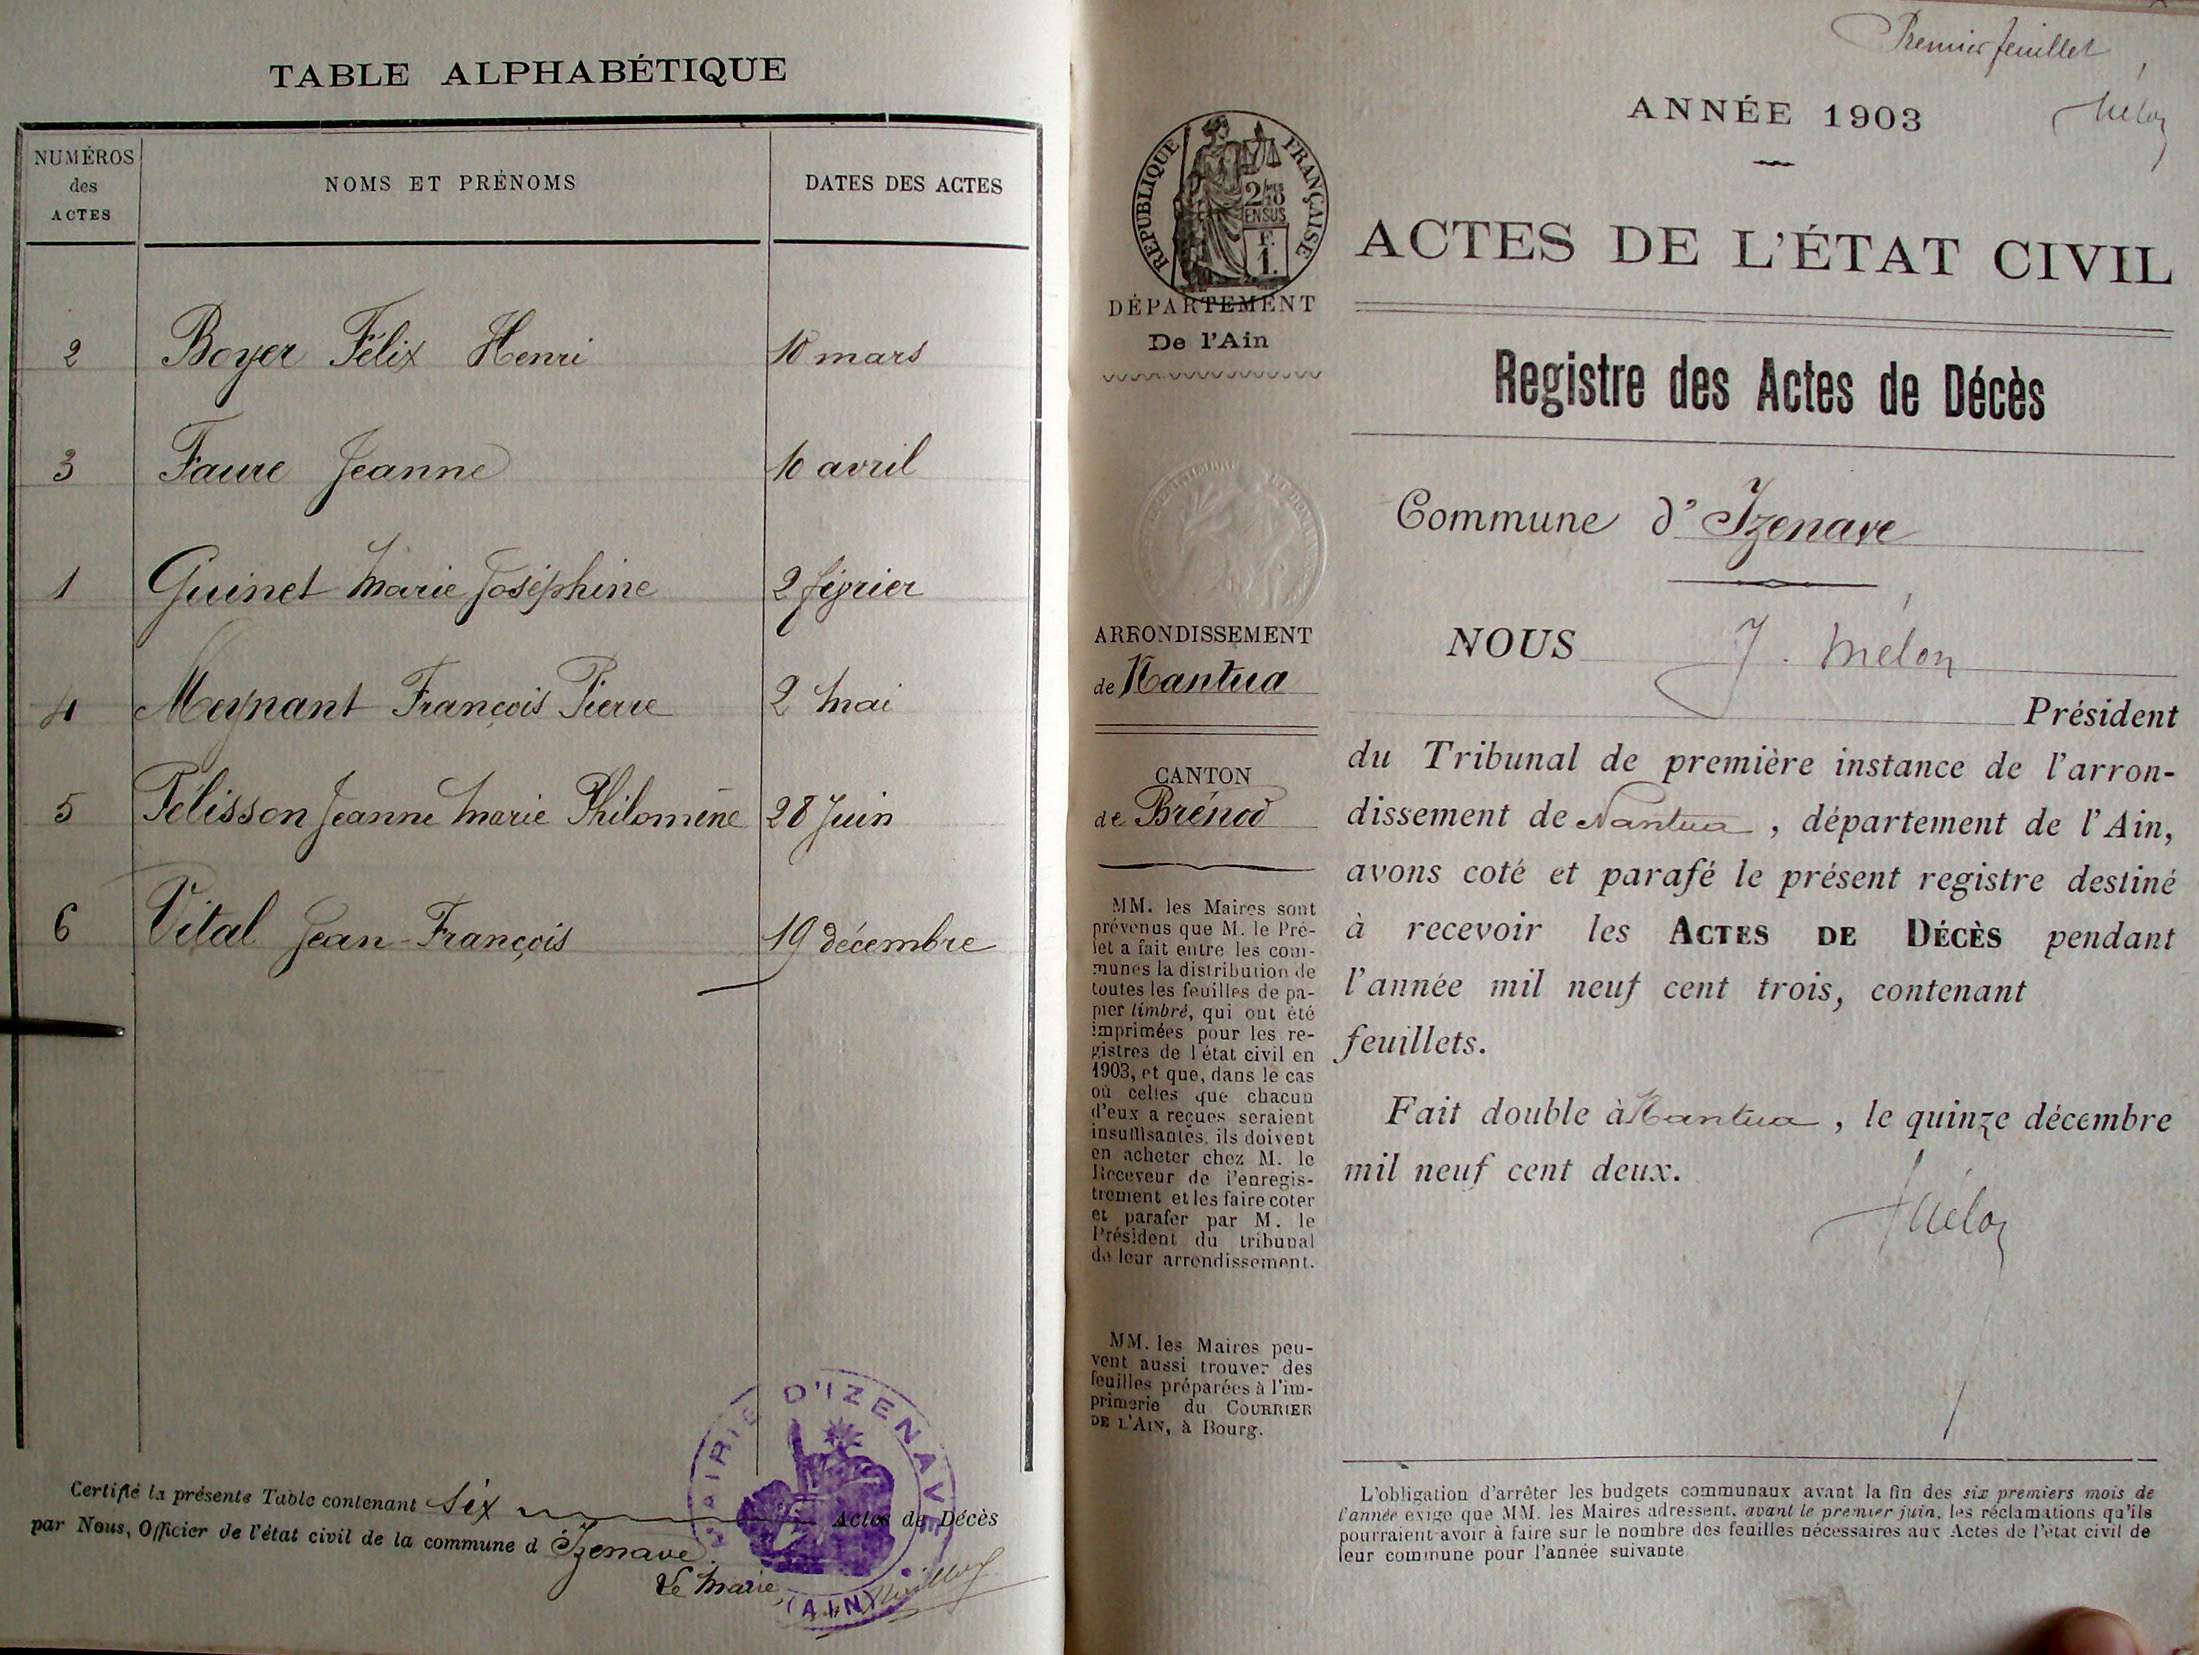 TABLE ALPHABÉTIQUE
NUMÉROS
des
ACTES
NOMS ET PRÉNOMS
DATES DES ACTES
2 Boyer Félix Henri 10 mars
3 Faure Jeanne 10 avril
1 Guinet Marie Joséphine 2 février
4 Meynant François Pierre 2 Mai
5 Pélisson Jeanne Marie Philomène 28 Juin
6 Vital Jean-François 19 décembre
Certifié la présente Table contenant six Actes de Décès
par Nous, Officier de l'état civil de la commune d'Izenave.
Le Maire
MAIRIE D'IZENAVE
(AIN)
Premier feuillet
Mélon
ANNÉE 1903
RÉPUBLIQUE FRANÇAISE
2/10
EN SUS
F.
1.
DÉPARTEMENT
De l'Ain
ACTES DE L'ÉTAT CIVIL
Registre des Actes de Décès
Commune d'Izenave
ARRONDISSEMENT
de Nantua
CANTON
de Brénod
MM. les Maires sont
prévenus que M. le Pré-
fet a fait entre les com-
munes la distribution de
toutes les feuilles de pa-
pier timbré, qui ont été
imprimées pour les re-
gistres de l'état civil en
1903, et que, dans le cas
où celles que chacun
d'eux a reçues seraient
insuffisantes, ils doivent
en acheter chez M. le
Receveur de l'enregis-
trement et les faire coter
et parafer par M. le
Président du tribunal
de leur arrondissement.
MM. les Maires peu-
vent aussi trouver des
feuilles préparées à l'im-
primerie du COURRIER
DE L'AIN, à Bourg.
NOUS J. Mélon
Président
du Tribunal de première instance de l'arron-
dissement de Nantua, département de l'Ain,
avons coté et parafé le présent registre destiné
à recevoir les ACTES DE DÉCÈS pendant
l'année mil neuf cent trois, contenant
feuillets.
Fait double à Nantua, le quinze décembre
mil neuf cent deux.
Mélon
L'obligation d'arrêter les budgets communaux avant la fin des six premiers mois de
l'année exige que MM. les Maires adressent, avant le premier juin, les réclamations qu'ils
pourraient avoir à faire sur le nombre des feuilles nécessaires aux Actes de l'état civil de
leur commune pour l'année suivante